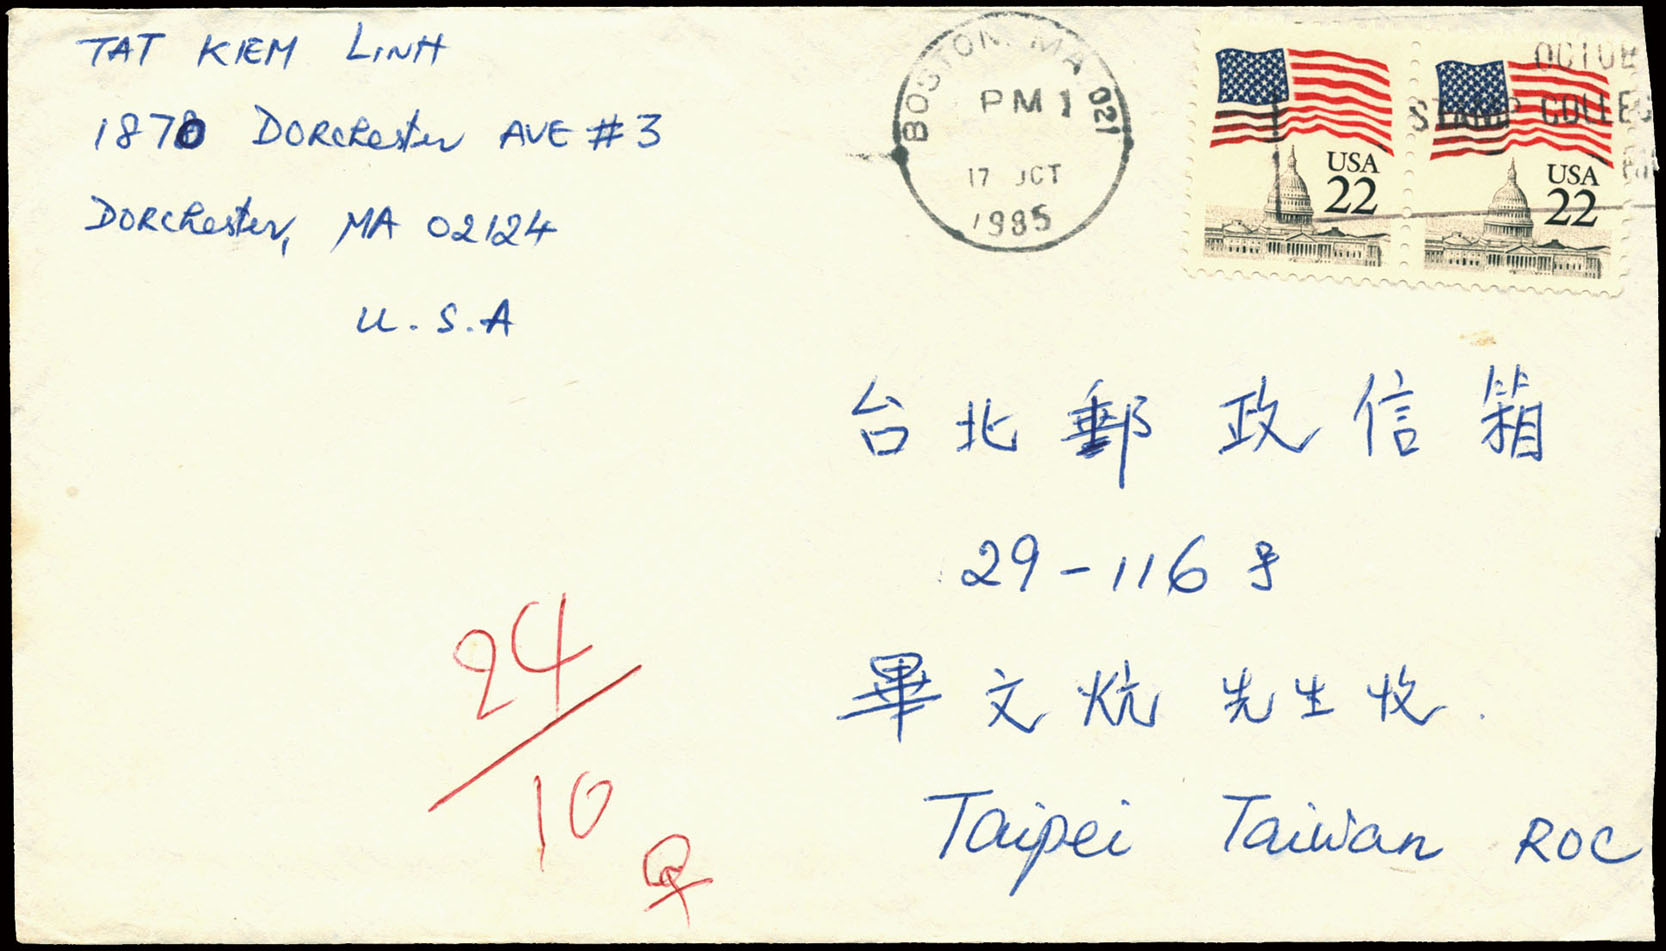 TAT KIEM LINH
1870 DORchester AVE #3
DORchester, MA 02124
U.S.A
BOSTON, MA 021
PM 1
17 OCT
1985
USA
22
USA
22
OCTOB
STAMP COLLEC
台北郵政信箱
29-116号
畢文炕先生收.
Taipei Taiwan ROC
24
10